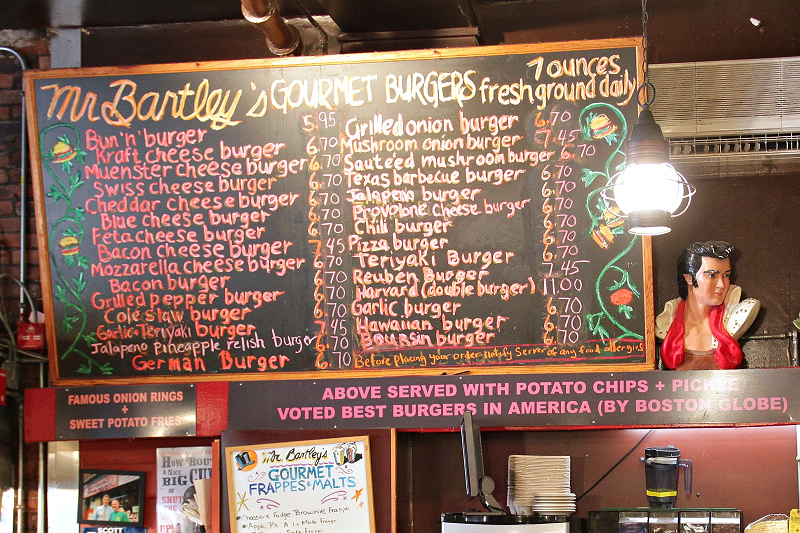 Mr Bartley's GOURMET BURGERS 7 ounces
fresh ground daily
Bun 'n' burger 5.95
Kraft cheese burger 6.70
Muenster cheese burger 6.70
Swiss cheese burger 6.70
Cheddar cheese burger 6.70
Blue cheese burger 6.70
Feta cheese burger 6.70
Bacon cheese burger 7.45
Mozzarella cheese burger 6.70
Bacon burger 6.70
Grilled pepper burger 6.70
Coleslaw burger 6.70
Garlic Teriyaki burger 7.45
Jalapeno pineapple relish burger 6.70
German Burger 6.70
Grilled onion burger 6.70
Mushroom onion burger 7.45
Sauteed mushroom burger 6.70
Texas barbecue burger 6.70
Jalapeno burger 6.70
Provolone cheese burger 6.70
Chili burger 6.70
Pizza burger 6.70
Teriyaki Burger 6.70
Reuben Burger 7.45
Harvard (double burger) 11.00
Garlic burger 6.70
Hawaiian burger 6.70
Boursin burger 6.70
Before placing your order notify Server of any food allergies
FAMOUS ONION RINGS
+
SWEET POTATO FRIES
ABOVE SERVED WITH POTATO CHIPS + PICKLE
VOTED BEST BURGERS IN AMERICA (BY BOSTON GLOBE)
HOW 'BOUT
A NICE
BIG CU
OF
SHUT
Mr. Bartley's
GOURMET
FRAPPES & MALTS
Chocolate Fudge Brownie Frappe
Apple Pie A La Mode Frappe
SCOTT